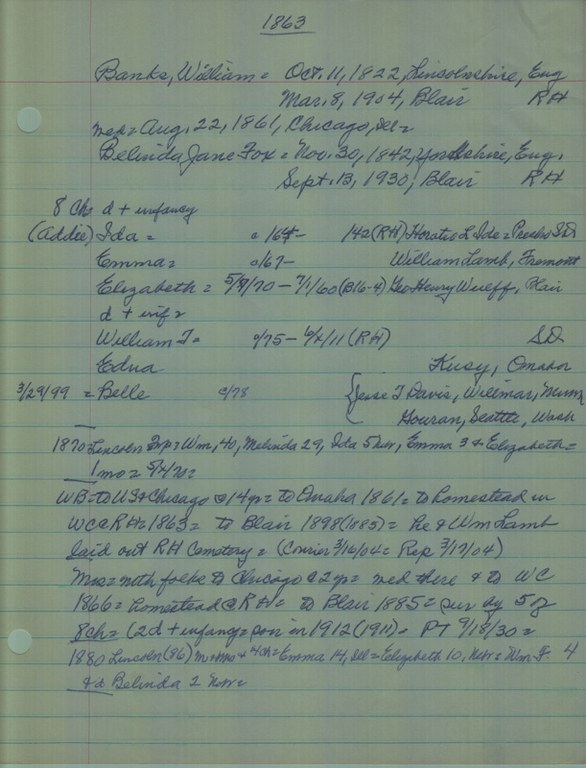 1863
Banks, William = Oct. 11, 1822, Lincolnshire, Eng
Mar. 8, 1904, Blair RH
med = Aug. 22, 1861, Chicago, Ill =
Belinda Jane Fox = Nov. 30, 1842, Yorkshire, Eng.
Sept. 13, 1930, Blair RH
8 Chs d + infancy
(Addie) Ida = c 164- 142 (RH) Horatio L Ide = SD
Emma = c/67- William Lamb, Fremont
Elizabeth = 5/8/70 - 7/1/60 (B16-4) Geo Henry Wulff, Blair
d + inf =
William T = c/75 - 6/2/11 (RH) SD
Edna Kusy, Omaha
3/29/99 = Belle c/78 Jesse T Davis, Willmar, Minn
Gouran, Seattle, Wash
1870 Lincoln Twp = Wm, 40, Melinda 29, Ida 5 Nov, Emma 3 + Elizabeth =
1 mo = 5/4/70 =
WB = to US + Chicago @ 14 yr = to Omaha 1861 = to homestead in
WC @ RH = 1863 = to Blair 1898 (1885) = he + Wm Lamb
laid out RH Cemetery = (Courier 3/16/04 = Rep 3/17/04)
Mrs = with folks to Chicago @ 2 yr = med there + to WC
1866 = homestead @ RH = to Blair 1885 = sur by 5 of
8 ch = (2 d + infancy = son in 1912 (1911) = PT 9/18/30 =
1880 Lincoln (86) m + mo + 4 ch = Emma 14, Ill = Elizabeth 10, Neb = Wm F 4
+ d Belinda 2 Neb =